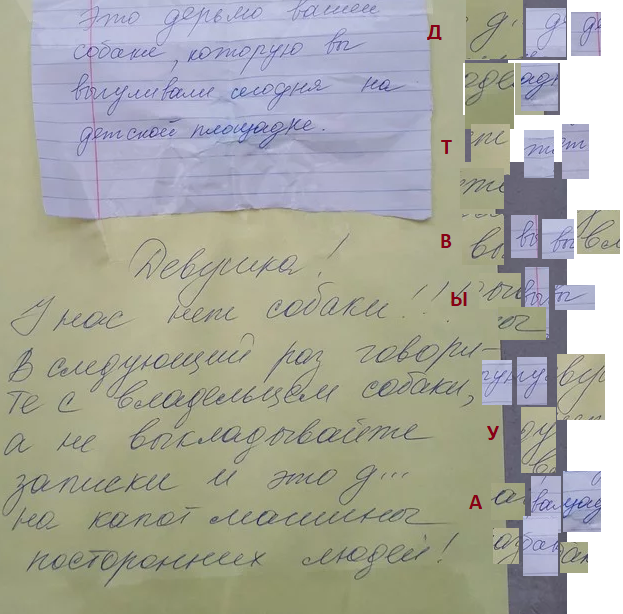 Это дерьмо вашей
собаки, которую вы
выгуливали сегодня на
детской площадке.
Девушка!
У нас нет собаки!!!
В следующий раз говори-
те с владельцем собаки,
а не выкладывайте
записки и это д...
на капот машины
посторонних людей!
Д
Т
В
Ы
У
А